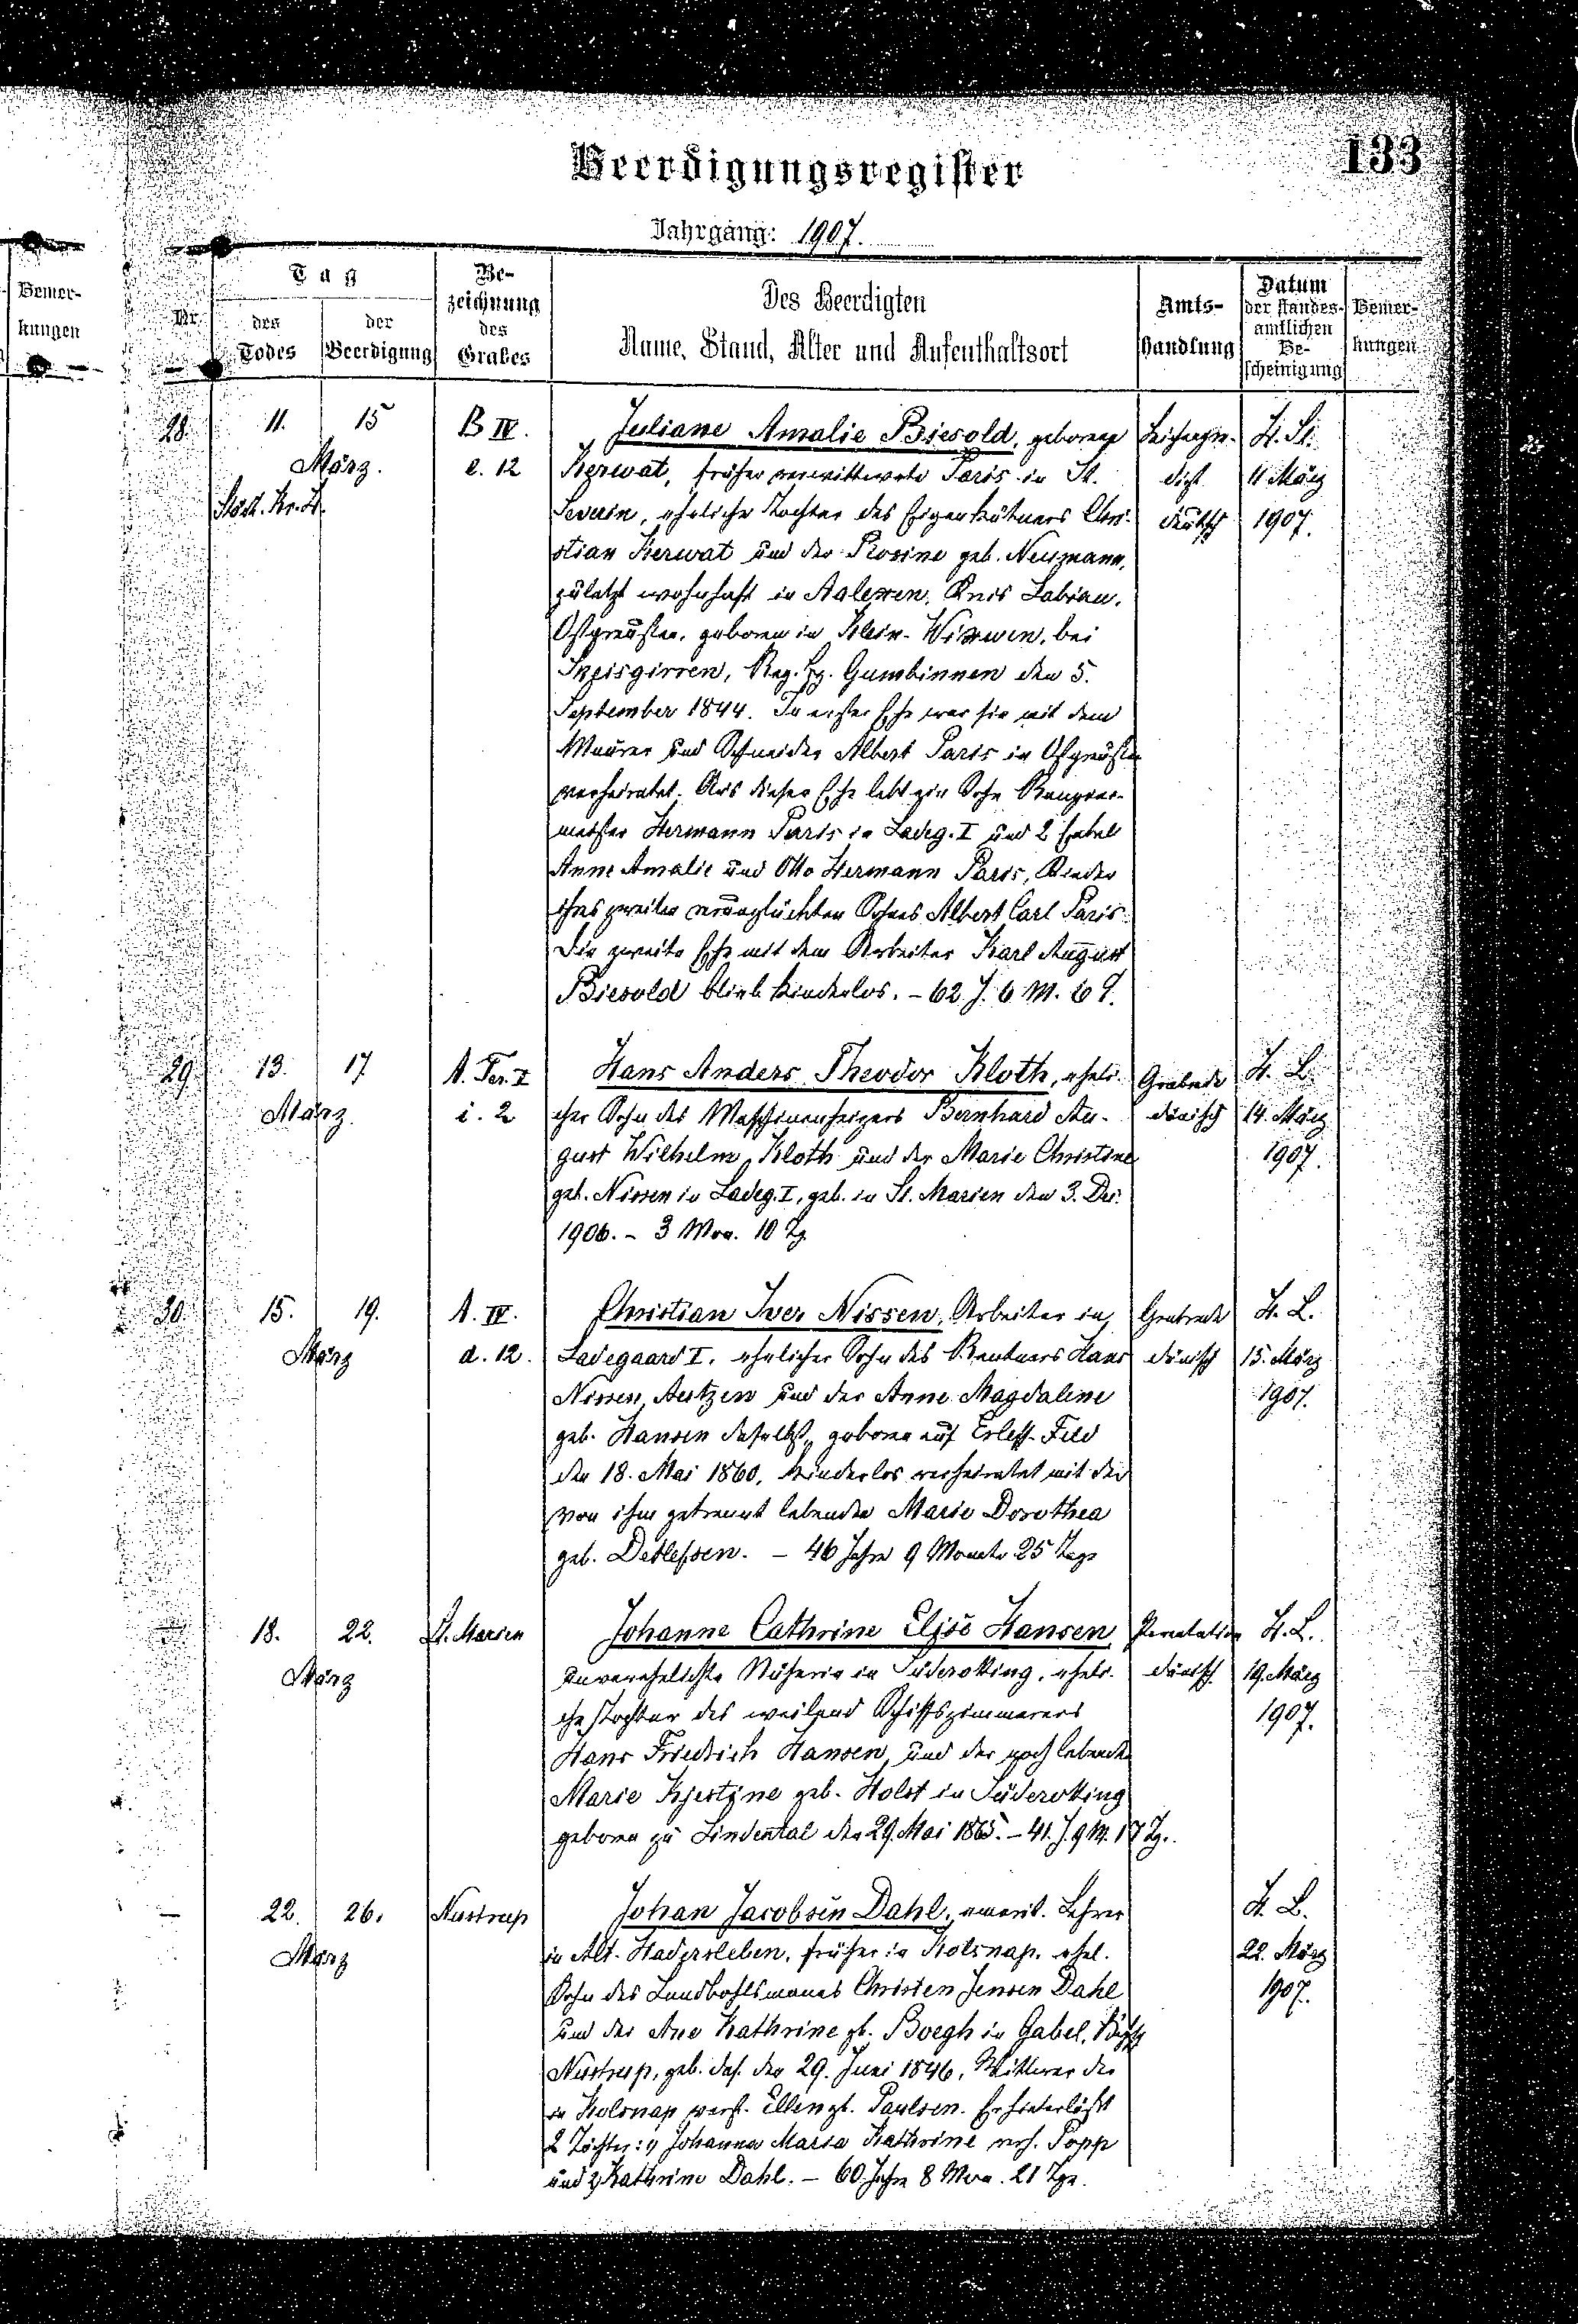 133
Beerdigungsregister
Jahrgang: 1907.
Bemer-
kungen
Nr.
Tag
des
Todes
der
Beerdigung
Be-
zeichnung
des
Grabes
Des Beerdigten
Name, Stand, Alter und Aufenthaltsort
Amts-
handlung
Datum
der standes-
amtlichen
Be-
scheinigung
Bemer-
kungen
28. 11. 15 B IV. Juliane Amalie Biesold, geborene H. St.
März. e. 12 Kerwat, früher verwittwete Paris in St. 11 März
Severin, eheliche Tochter des Eigenkätners Chri- deutsch 1907.
stian Kerwat und der Rosine geb. Neumann,
zuletzt wohnhaft in Kreis Labiau,
Ostpreußen, geboren in Klein- bei
Skaisgirren, Reg. Bz. Gumbinnen den 5.
September 1844. In erster Ehe war sie mit dem
Maurer und Schneider Albert Paris in Ostpreußen
verheiratet. Aus dieser Ehe lebt ein Sohn Rangier-
meister Hermann Paris in Ladeg. I und 2 Enkel
Anne Amalie und Otto Hermann Paris, Kinder
ihres zweiten verunglückten Sohnes Albert Carl Paris.
Die zweite Ehe mit dem Arbeiter Karl August
Biesold blieb kinderlos. – 62 J. 6 M. 6 T.
29. 13. 17 A. Ter. I Hans Anders Theodor Kloth, eheli- Grabrede H. L.
März. i. 2 cher Sohn des Maschinenheizers Bernhard Au- dänisch 14. März
gust Wilhelm Kloth und der Marie Christine 1907.
geb. Nissen in Ladeg. I, geb. in St. Marien den 3. Dez.
1906. – 3 Mon. 10 Tg.
30. 15. 19. A. IV. Christian Iver Nissen, Arbeiter in Grabrede H. L.
März d. 12. Ladegaard I, ehelicher Sohn des Rentners Hans dänisch 15. März
Nissen Autzen und der Anne Magdaline 1907.
geb. Hansen daselbst, geboren auf Erleff-Feld
den 18. Mai 1860, kinderlos verheiratet mit der
von ihm getrennt lebenden Marie Dorothea
geb. Detlefsen. – 46 Jahre 9 Monate 25 Tage
18. 22. St. Marien Johanne Cathrine Elise Hansen H. L.
März unverehelichte Näherin in Süderotting, eheli- dänisch. 19. März
che Tochter des weiland Schiffszimmerers 1907.
Hans Friedrich Hansen und der noch lebenden
Marie Kjestine geb. Holst in Süderotting
geboren zu Lindental den 29. Mai 1865. – 41. J. 9 M. 17 Tg.
22. 26. Nustrup Johan Jacobsen Dahl, emerit. Lehrer H. L.
März in Alt-Hadersleben, früher in Kolsnap, ehel. 22. März
Sohn des Landbohlsmanns Christen Jensen Dahl 1907.
und der Ane Kathrine gb. Boegh in Gabel,
Nustrup, geb. das. den 29. Juni 1846, Wittwer der
in Kolsnap verst. Ellen gb. Paulsen. Er hinterläßt
2 Töchter: 1) Johanna Maria Kathrine verh. Popp
und 2) Kathrine Dahl. – 60 Jahre 8 Mon. 21 Tge.